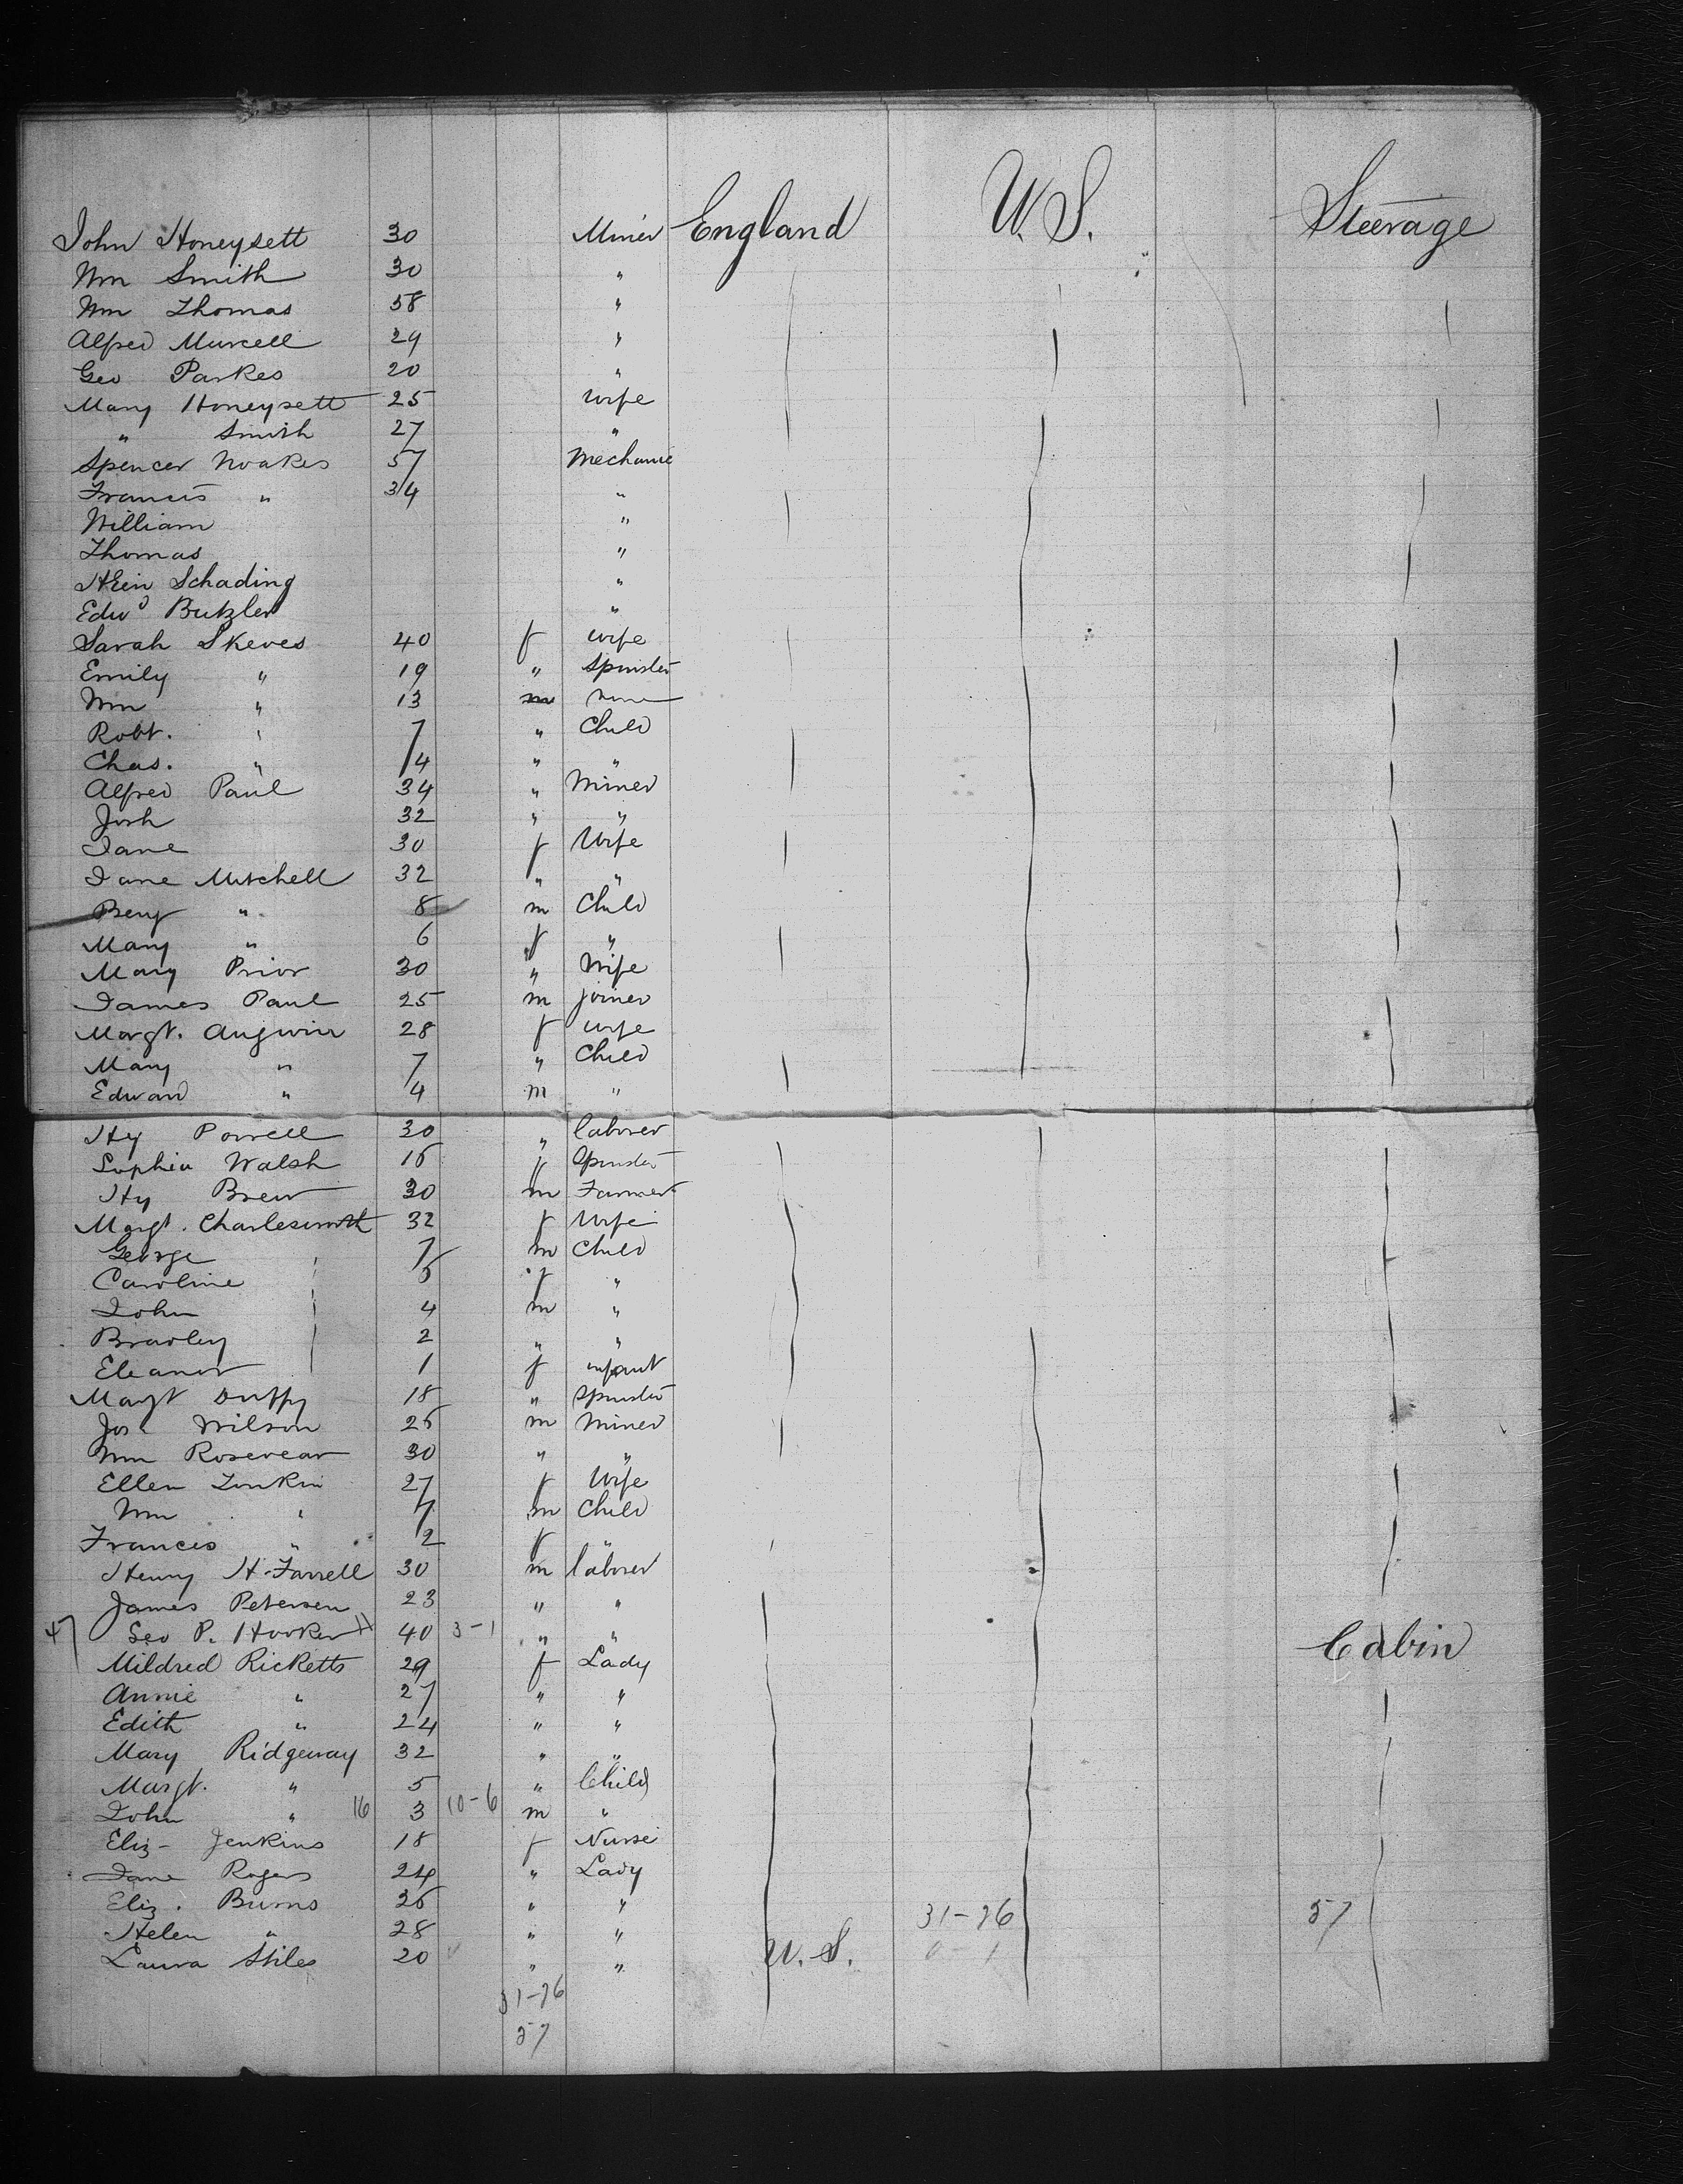 John Honeysett 30 Miner England U.S. Steerage
Wm Smith 30 "
Wm Thomas 58 "
Alfred Murcell 29 "
Geo Parkes 20 "
Mary Honeysett 25 Wife
" Smith 27 "
Spencer Noakes 57 Mechanic
Francis " 34 "
William "
Thomas "
Hein Schading "
Edwd Butzler "
Sarah Skeves 40 f wife
Emily " 19 " Spinster
Wm " 13 m none
Robt. " 7 " Child
Chas. " 4 " "
Alfred Paul 34 " Miner
Josh 32 " "
Jane 30 f Wife
Jane Mitchell 32 " "
Benj " 8 m Child
Mary " 6 f "
Mary Prior 30 " Wife
James Paul 25 m joiner
Margt. Angwin 28 f wife
Mary " 7 " Child
Edward " 4 m "
Hy Powell 30 " laborer
Sophia Walsh 16 f Spinster
Hy Brew 30 m Farmer
Margt. Charlesworth 32 f Wife
George 7 m Child
Caroline 5 f "
John 4 m "
Bradley 2 " "
Eleanor 1 f infant
Margt Duffy 18 " Spinster
Jos Wilson 25 m Miner
Wm Rosevear 30 " "
Ellen Tonkin 27 f Wife
Wm " 7 m Child
Frances " 2 f "
Henry H. Farrell 30 m laborer
James Petersen 23 " "
47 Geo P. Hooker 40 3-1 " " Cabin
Mildred Ricketts 29 f Lady
Annie " 27 " "
Edith " 24 " "
Mary Ridgeway 32 " "
Margt. " 5 " Child
John " 16 3 10-6 m "
Eliz- Jenkins 18 f Nurse
Jane Rogers 24 " Lady
Eliz. Burns 26 " " 31-26 57
Helen " 28 " "
Laura Stiles 20 " " U.S. 0-1
31-26
57